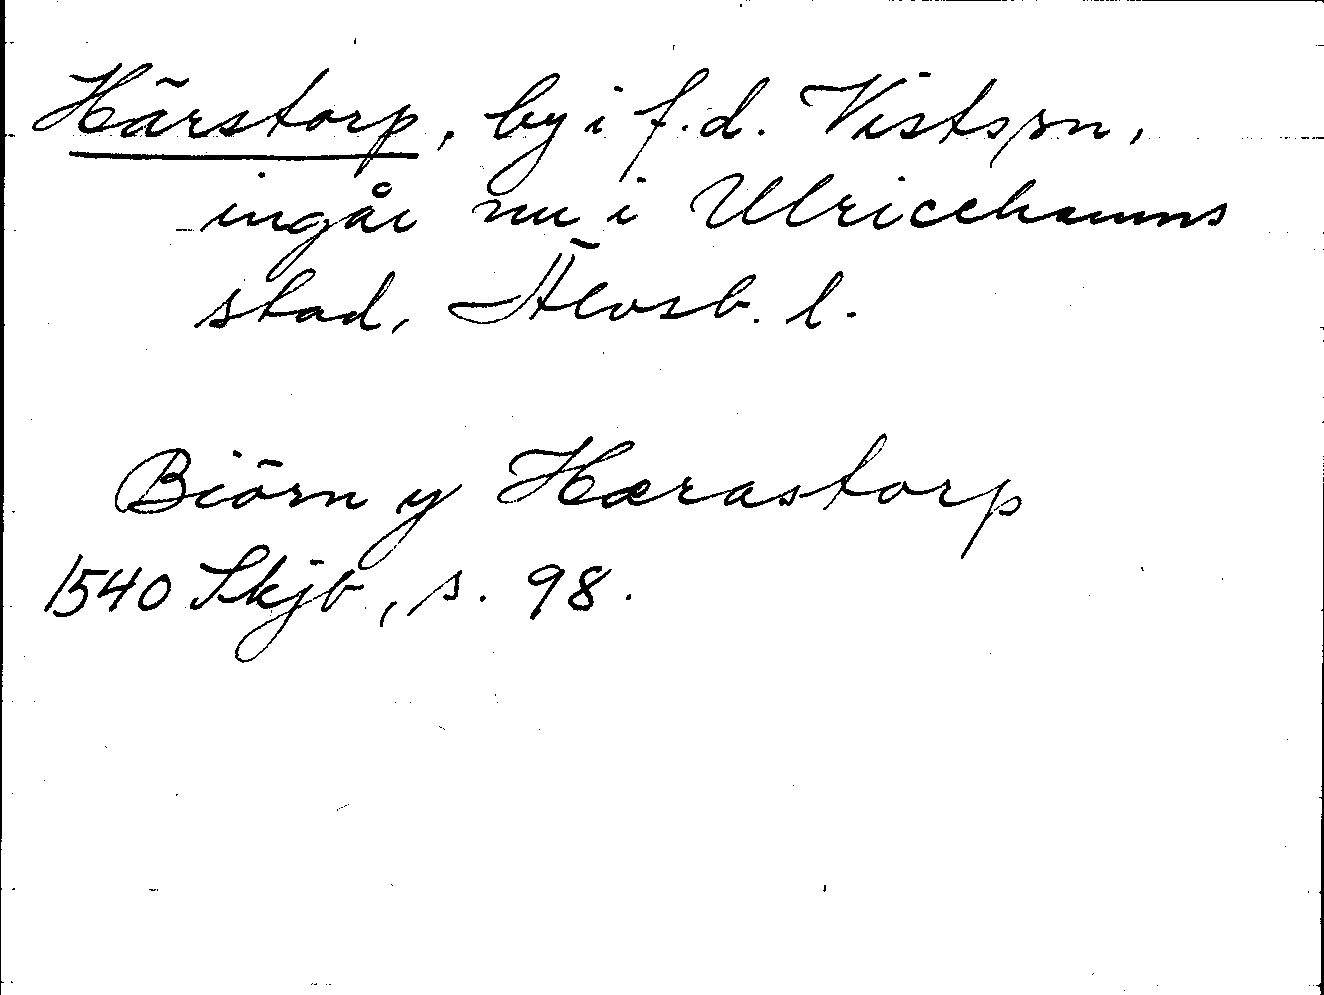 Härstorp, by i f.d. Vists sn,
ingår nu i Ulricehamns
stad, Älvsb. l.
Biörn y Hærastorp
1540 Skjb, s. 98.